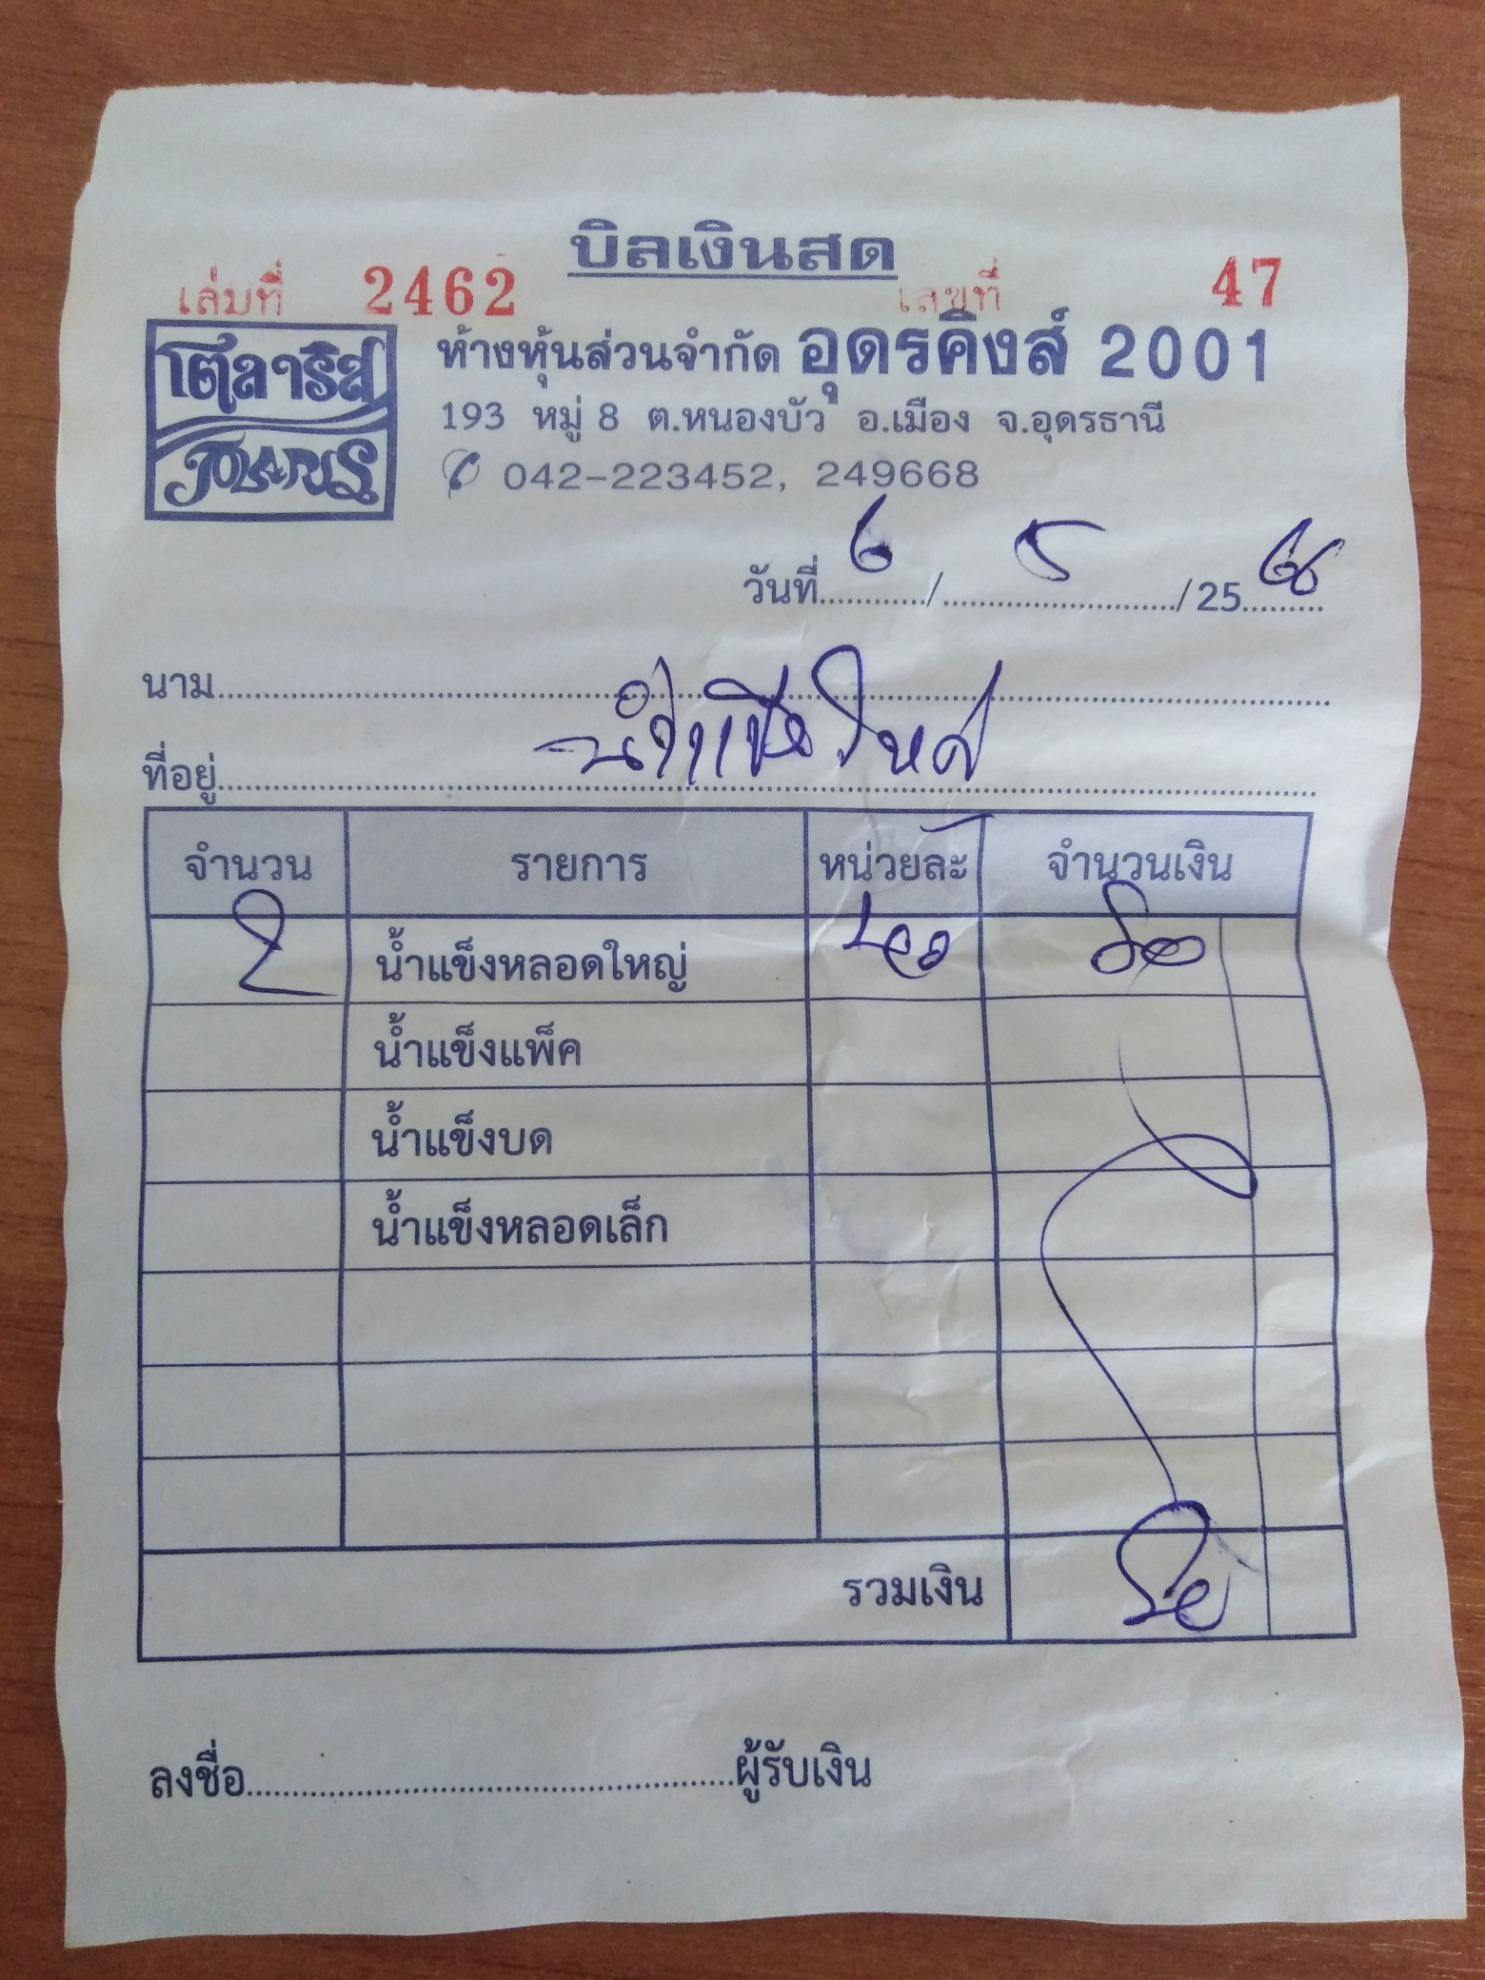 บิลเงินสด
เล่มที่ 2462 เลขที่ 47
โตลาริส
POLARIS
ห้างหุ้นส่วนจำกัด อุดรคิงส์ 2001
193 หมู่ 8 ต.หนองบัว อ.เมือง จ.อุดรธานี
042-223452, 249668
วันที่ 6 / 5 / 25
นาม
ที่อยู่
จำนวน รายการ หน่วยละ จำนวนเงิน
2 น้ำแข็งหลอดใหญ่ 40 80
น้ำแข็งแพ็ค
น้ำแข็งบด
น้ำแข็งหลอดเล็ก
รวมเงิน 80
ลงชื่อ ผู้รับเงิน